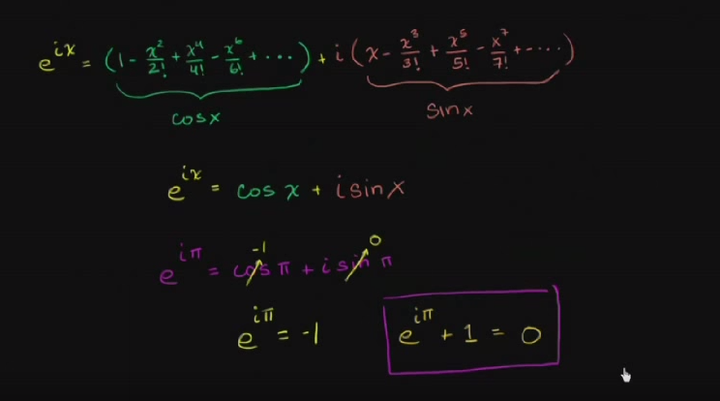 e^{ix} = (1 - x²/2! + x⁴/4! - x⁶/6! + ...) + i(x - x³/3! + x⁵/5! - x⁷/7! + - ....)
cosx sinx
e^{ix} = cos x + i sin x
-1 0
e^{iπ} = cos π + i sin π
e^{iπ} = -1 e^{iπ} + 1 = 0